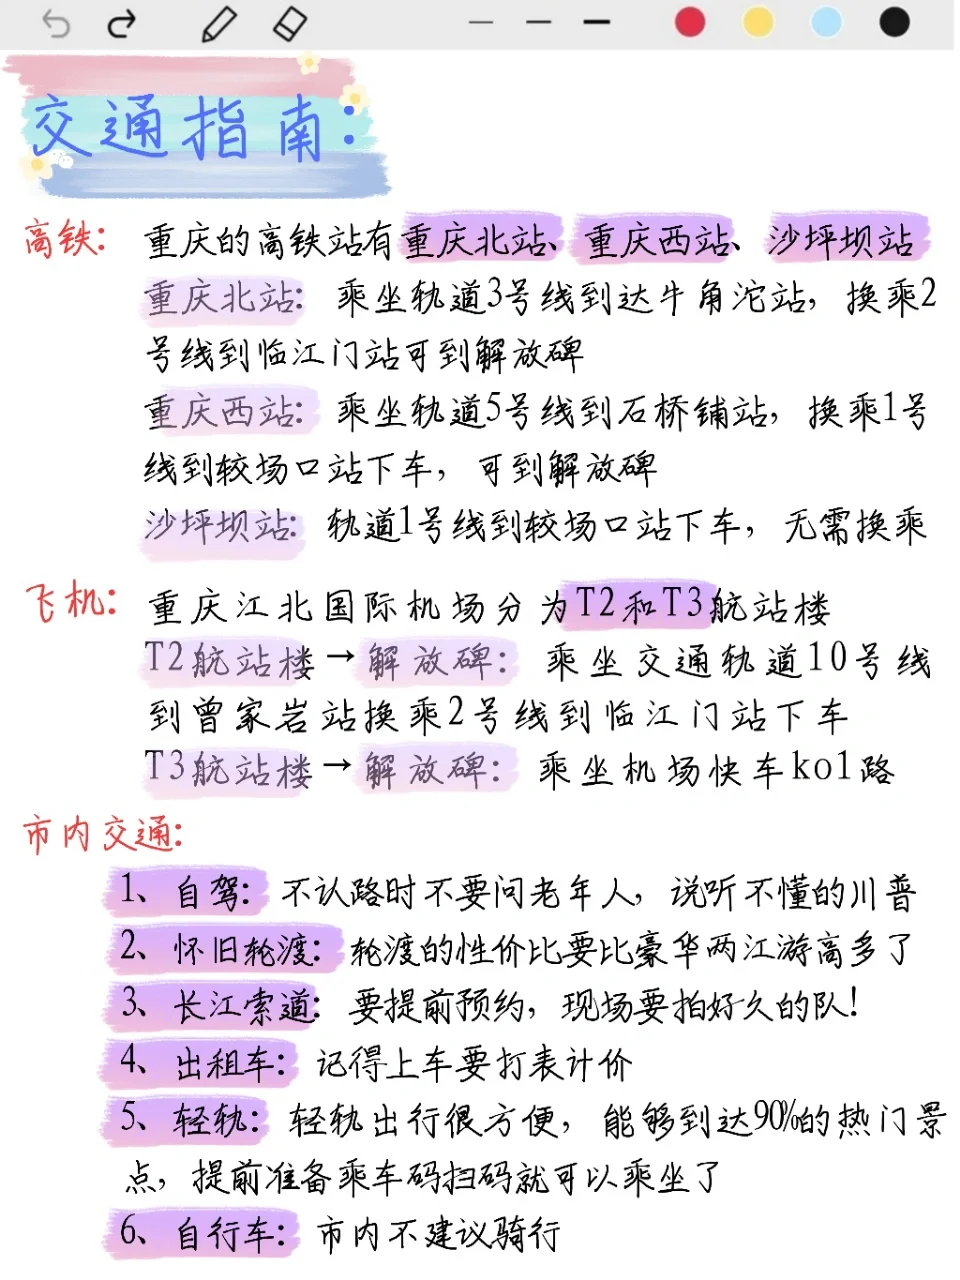 交通指南：
高铁：重庆的高铁站有重庆北站、重庆西站、沙坪坝站
重庆北站：乘坐轨道3号线到达牛角沱站，换乘2
号线到临江门站可到解放碑
重庆西站：乘坐轨道5号线到石桥铺站，换乘1号
线到较场口站下车，可到解放碑
沙坪坝站：轨道1号线到较场口站下车，无需换乘
飞机：重庆江北国际机场分为T2和T3航站楼
T2航站楼→解放碑：乘坐交通轨道10号线
到曾家岩站换乘2号线到临江门站下车
T3航站楼→解放碑：乘坐机场快车ko1路
市内交通：
1、自驾：不认路时不要问老年人，说听不懂的川普
2、怀旧轮渡：轮渡的性价比要比豪华两江游高多了
3、长江索道：要提前预约，现场要拍好久的队！
4、出租车：记得上车要打表计价
5、轻轨：轻轨出行很方便，能够到达90%的热门景
点，提前准备乘车码扫码就可以乘坐了
6、自行车：市内不建议骑行